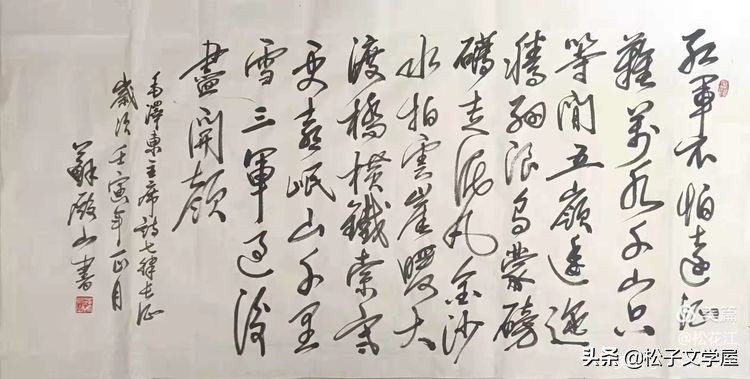 紅軍不怕遠征
難萬水千山只
等閒五嶺逶迤
騰細浪烏蒙磅
礴走泥丸金沙
水拍雲崖暖大
渡橋橫鐵索寒
更喜岷山千里
雪三軍過後
盡開顏
毛澤東主席詩七律長征
歲次壬寅年正月
蘇殿山書
美篇
@松花江
头条 @松子文学屋